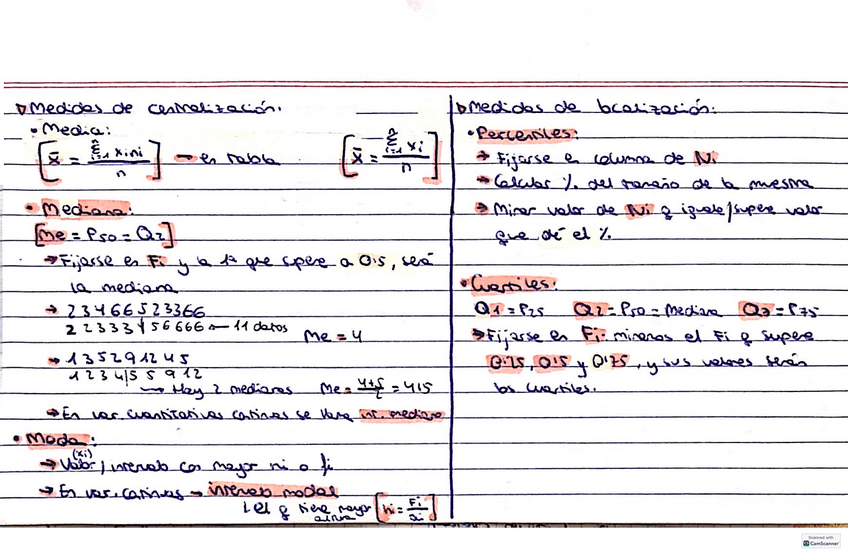 ▷ Medidas de centralización.
• Media:
[x̄ = Σⁿᵢ₌₁ xᵢnᵢ / n] → en tabla [x̄ = Σⁿᵢ₌₁ xᵢ / n]
• Mediana:
[Me = P50 = Q2]
→ Fijarse en Fi y la 1ª que supere a 0'5, será
la mediana
→ 23466523366
22333456666 → 11 datos Me = 4
→ 135291245
1234/55912
→ Hay 2 medianas Me = 4+5/2 = 4'5
→ En var. cuantitativas continuas se llama int. mediano
• Moda:
(xi)
→ Valor / intervalo con mayor ni o fi
→ En var. continuas → intervalo modal
↳ el q tiene mayor [hi = Fi/ai]
altura
▷ Medidas de localización:
• Percentiles:
→ Fijarse en columna de Ni
→ Calcular % del tamaño de la muestra
→ Mirar valor de Ni q iguale/supere valor
que dé el %
• Cuartiles:
Q1 = P25 Q2 = P50 = Mediana Q3 = P75
→ Fijarse en Fi: miramos el Fi q supere
0'25, 0'5 y 0'75, y sus valores serán
los cuartiles.
Scanned with
CamScanner